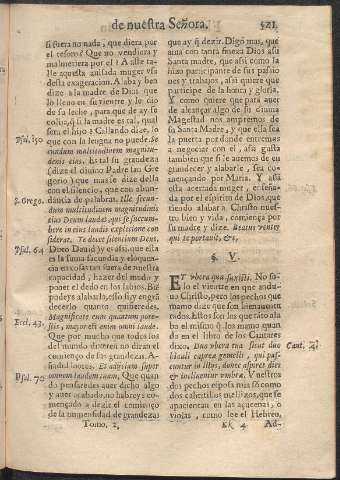 de nuestra Señora. 521
si fuera no nada, que diera por
el tesoro? Que no vendiera y
malmetiera por el? A este ta-
lle aquesta auisada muger vsa
desta exageracion. Alaba y ben
dize a la madre de Dios que
lo lleuo en su vientre y le dio
de su leche, para que de ay se
colija, si la madre es tal, qual
sera el hijo? Callando dize, lo
que con la lengua no puede. Se
cundum multitudinem magnitu-
dinis eius, Es tal su grandeza
(dize el diuino Padre san Gre
gorio) que mas se dize della
con el silencio, que con abun-
dãncia de palabras. Ille secun-
dum multitudinem magnitudinis
eius Deum laudat, qui se succum-
bere in eius laudis explesione con
siderat. Te decet silentium Deus,
Dixo Dauid y es assi, que esta
es la suma facundia y eloquen-
cia en cosas tan fuera de nuestra
capacidad, hazer del mudo y
poner el dedo en los labios. Biẽ
podeys alabarlo, esso si, y engrã
decerlo quanto quisieredes.
Magnificate eum quantum pote-
stis, mayor est enim omni laude.
Que por mucho que todos los
del mundo dixeren no diran el
comienço de sus grandezas. A-
ñade laudes. Et adiiciam super
omnem laudem tuam, Que quan
do pensaredes auer dicho algo
y auer acabado, no habreys co-
mençado a dezir el comienço
de la inmensidad de grandezas
Tomo. 2,
Psal. 150
S. Grego.
Psal. 64
Eccl. 43,
Psal. 70
que ay q̃ dezir. Digo mas, que
aun con tanta fineza Dios a su
Santa madre, que assi como la
hizo participante de sus passio
nes y trabajos, assi quiere que
participe de la honra y gloria.
Y como quiere que para auer
de alcançar algo de su diuina
Magestad nos amparemos de
su Santa Madre, y que ella sea
la puerta por donde entremos
a negociar con el, assi gusta
tambien que si le auemos de en
grandecer y alabarle, sea co-
mençando por Maria. Y assi
esta acertada muger, enseña-
da por el espiritu de Dios, que-
riendo alabar a Christo nues-
tro bien y vida, comiença por
su madre y dize. Beatus venter
qui te portauit, &c,
§. V.
ET vbera quæ suxisti. No so-
lo el vientre en que anduuo
Christo, pero los pechos que
mamo dize que son bienauentu
rados. Estos son los que tãto ala
ba el mismo q̃ los mamo quan
do en el libro de los Cantares
dixo. Duo vbera tua sicut duo
hinuli capreæ gemelli, qui pas-
cuntur in liljs, donec aspiret dies
& inclinentur vmbræ. Vuestros
dos pechos esposa mia sõ como
dos cabritillos mellizos, que se
apacientan en las açucenas, o
violas, como lee el Hebreo,
Kk 4 Ad-
Cant. 4.